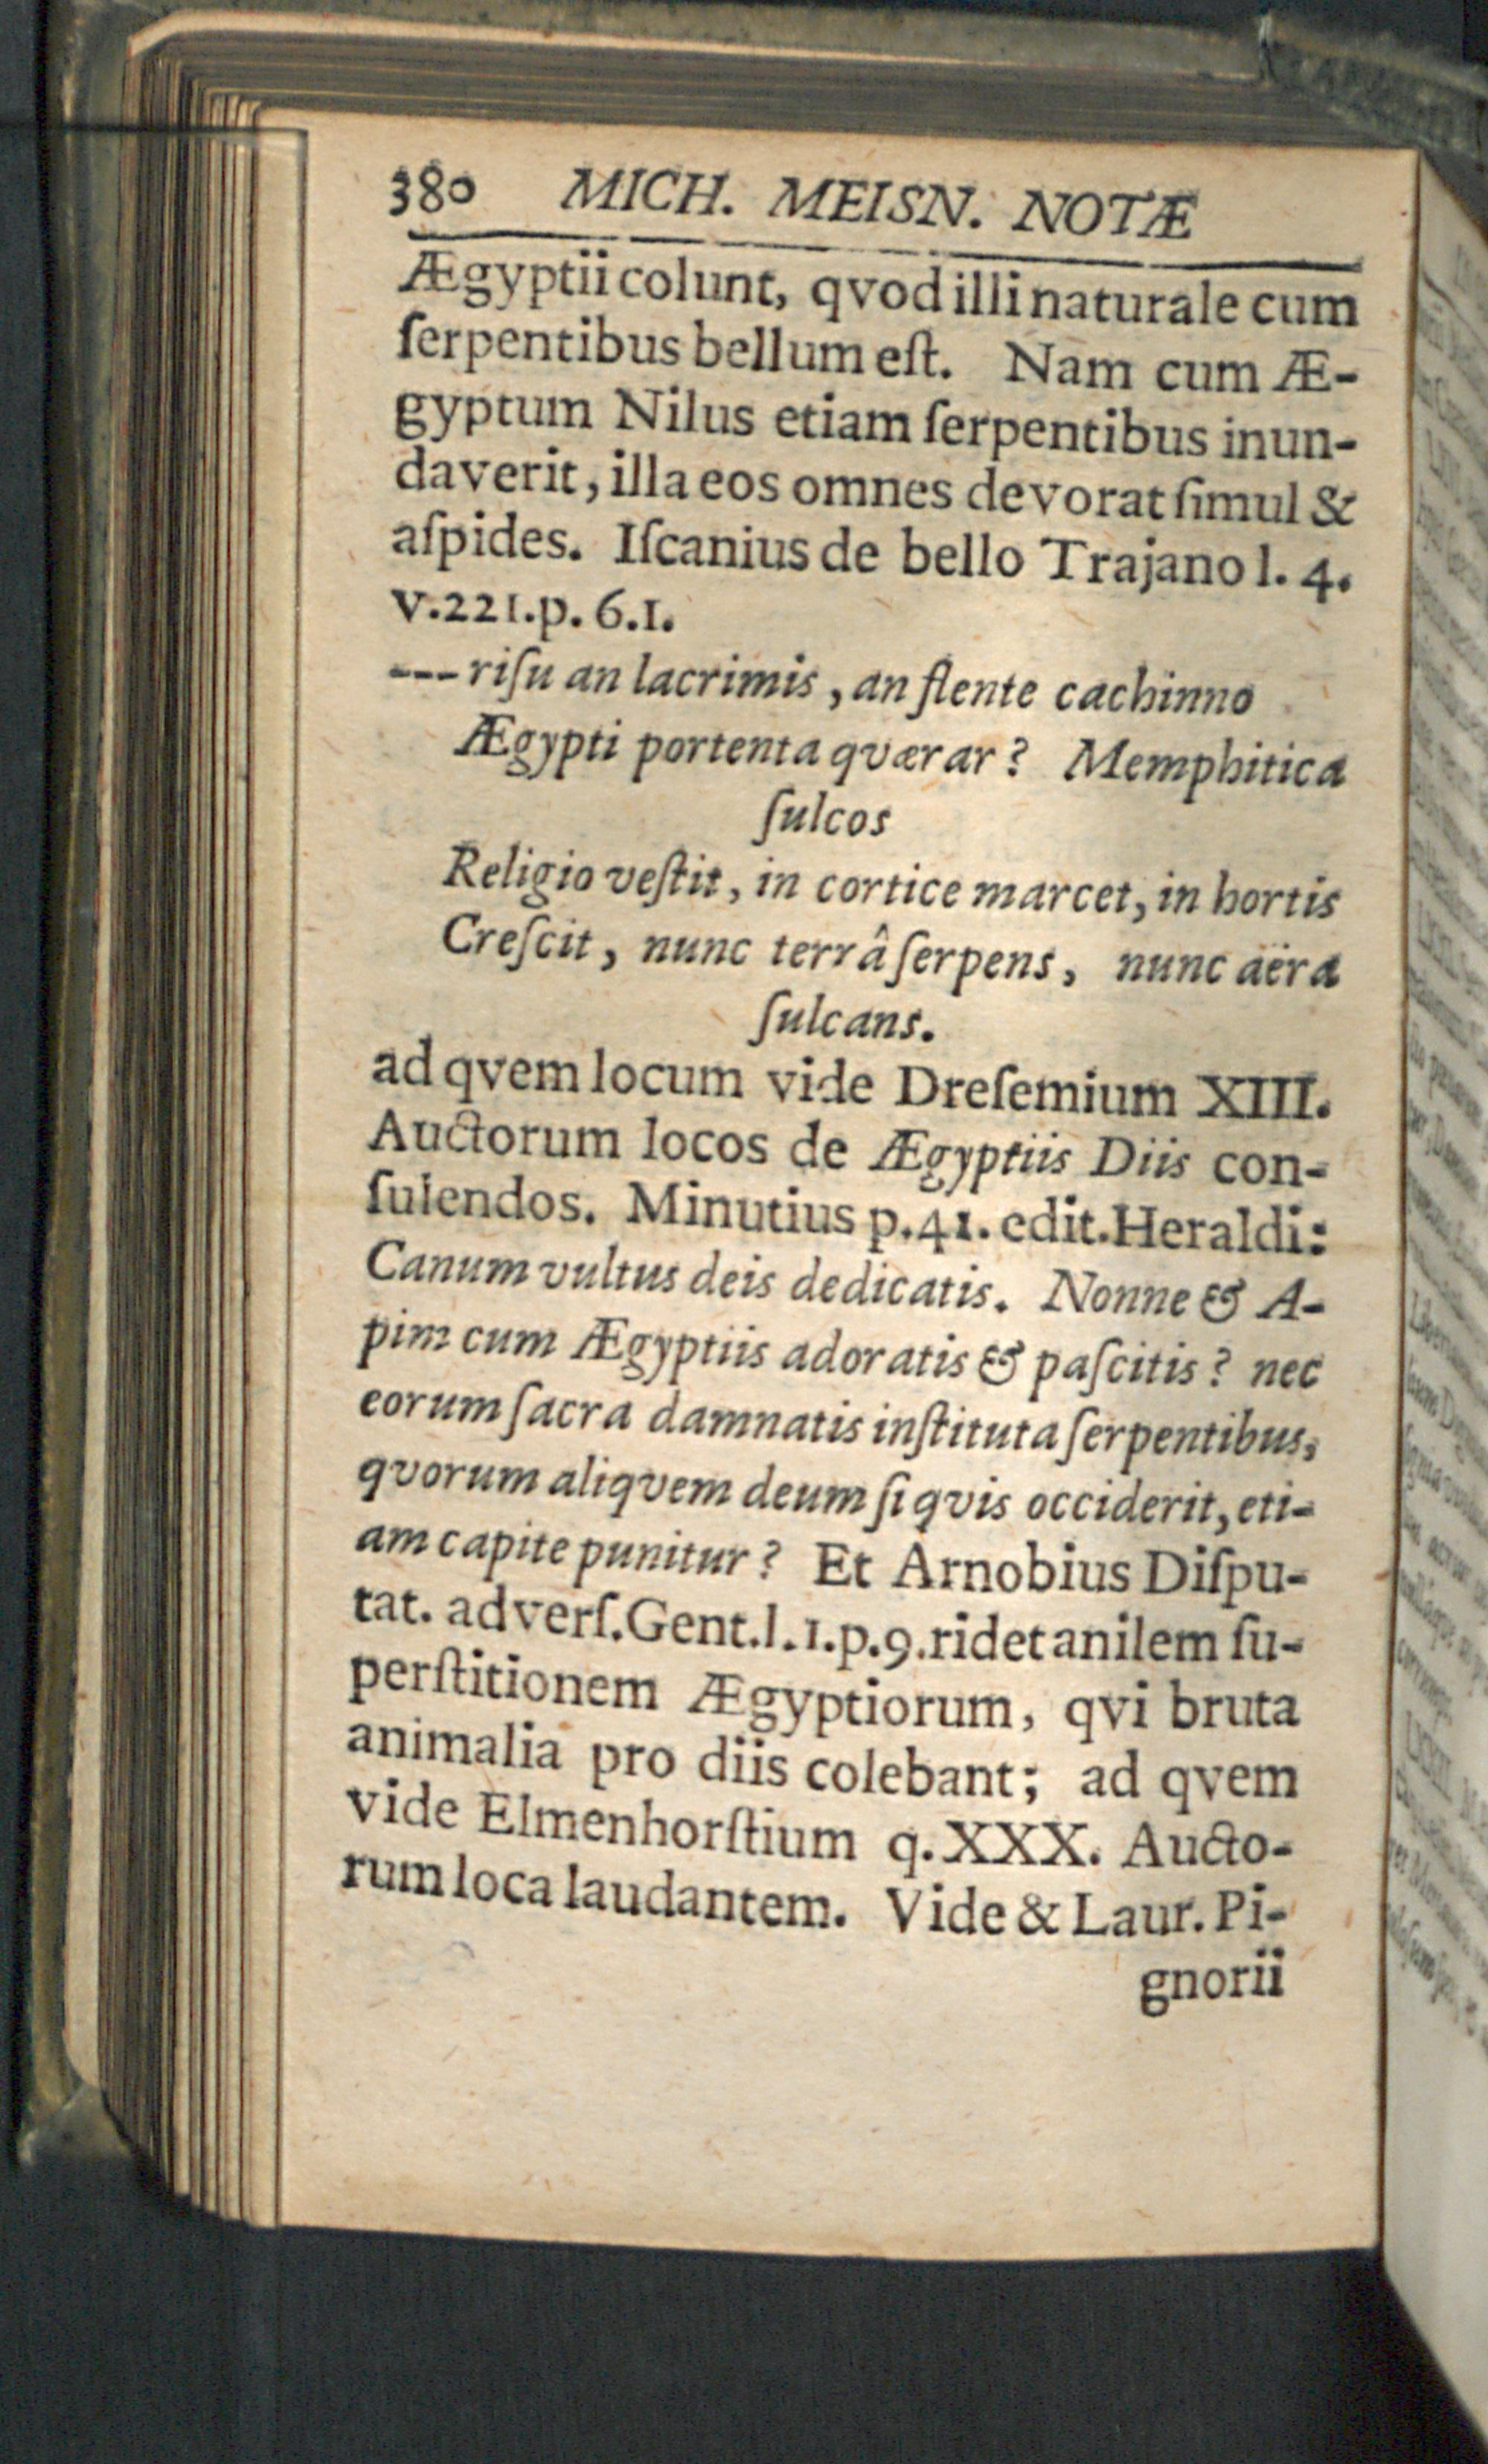 380 MICH. MEISN. NOTÆ
Ægyptii colunt, qvod illi naturale cum
ſerpentibus bellum eſt. Nam cum Æ-
gyptum Nilus etiam ſerpentibus inun-
daverit, illa eos omnes devorat ſimul &
aſpides. Iſcanius de bello Trajano l. 4.
v.221.p. 6.1.
--- riſu an lacrimis, an flente cachinno
Ægypti portenta qværar? Memphitica
ſulcos
Religio veſtit, in cortice marcet, in hortis
Creſcit, nunc terrâ ſerpens, nunc aëra
ſulcans.
ad qvem locum vide Dreſemium XIII.
Auctorum locos de Ægyptiis Diis con-
ſulendos. Minutius p.41. edit.Heraldi:
Canum vultus deis dedicatis. Nonne & A-
pim cum Ægyptiis adoratis & paſcitis? nec
eorum ſacra damnatis inſtituta ſerpentibus,
qvorum aliqvem deum ſi qvis occiderit, eti-
am capite punitur? Et Arnobius Diſpu-
tat. adverſ.Gent.l.1.p.9.ridet anilem ſu-
perſtitionem Ægyptiorum, qvi bruta
animalia pro diis colebant; ad qvem
vide Elmenhorſtium q.XXX. Aucto-
rum loca laudantem. Vide & Laur. Pi-
gnorii